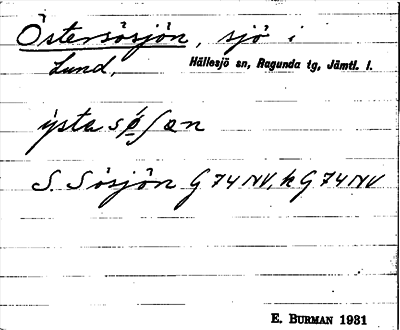 Östersösjön, sjö i
Lund, Hällesjö sn, Ragunda tg, Jämtl. l.
ỳsta sǿʃøn
S. Sösjön G 74 NV, k G 74 NV
E. BURMAN 1931